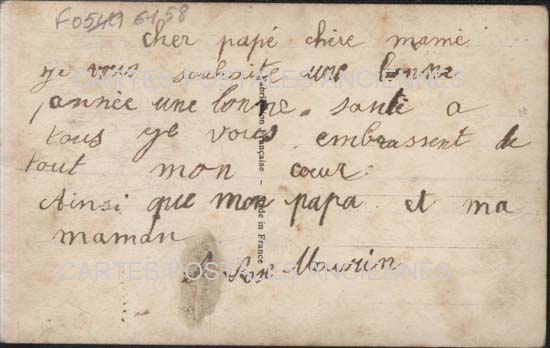 cher papé chère mamé
je vous souhaite une bonne
année une bonne santé a
tous je vous embrassent de
tout mon cœur
Ainsi que mon papa et ma
maman
Mourin
Fabrication Française - Made in France
CARTES POSTALES ANCIENNES
CARTES POSTALES ANCIENNES